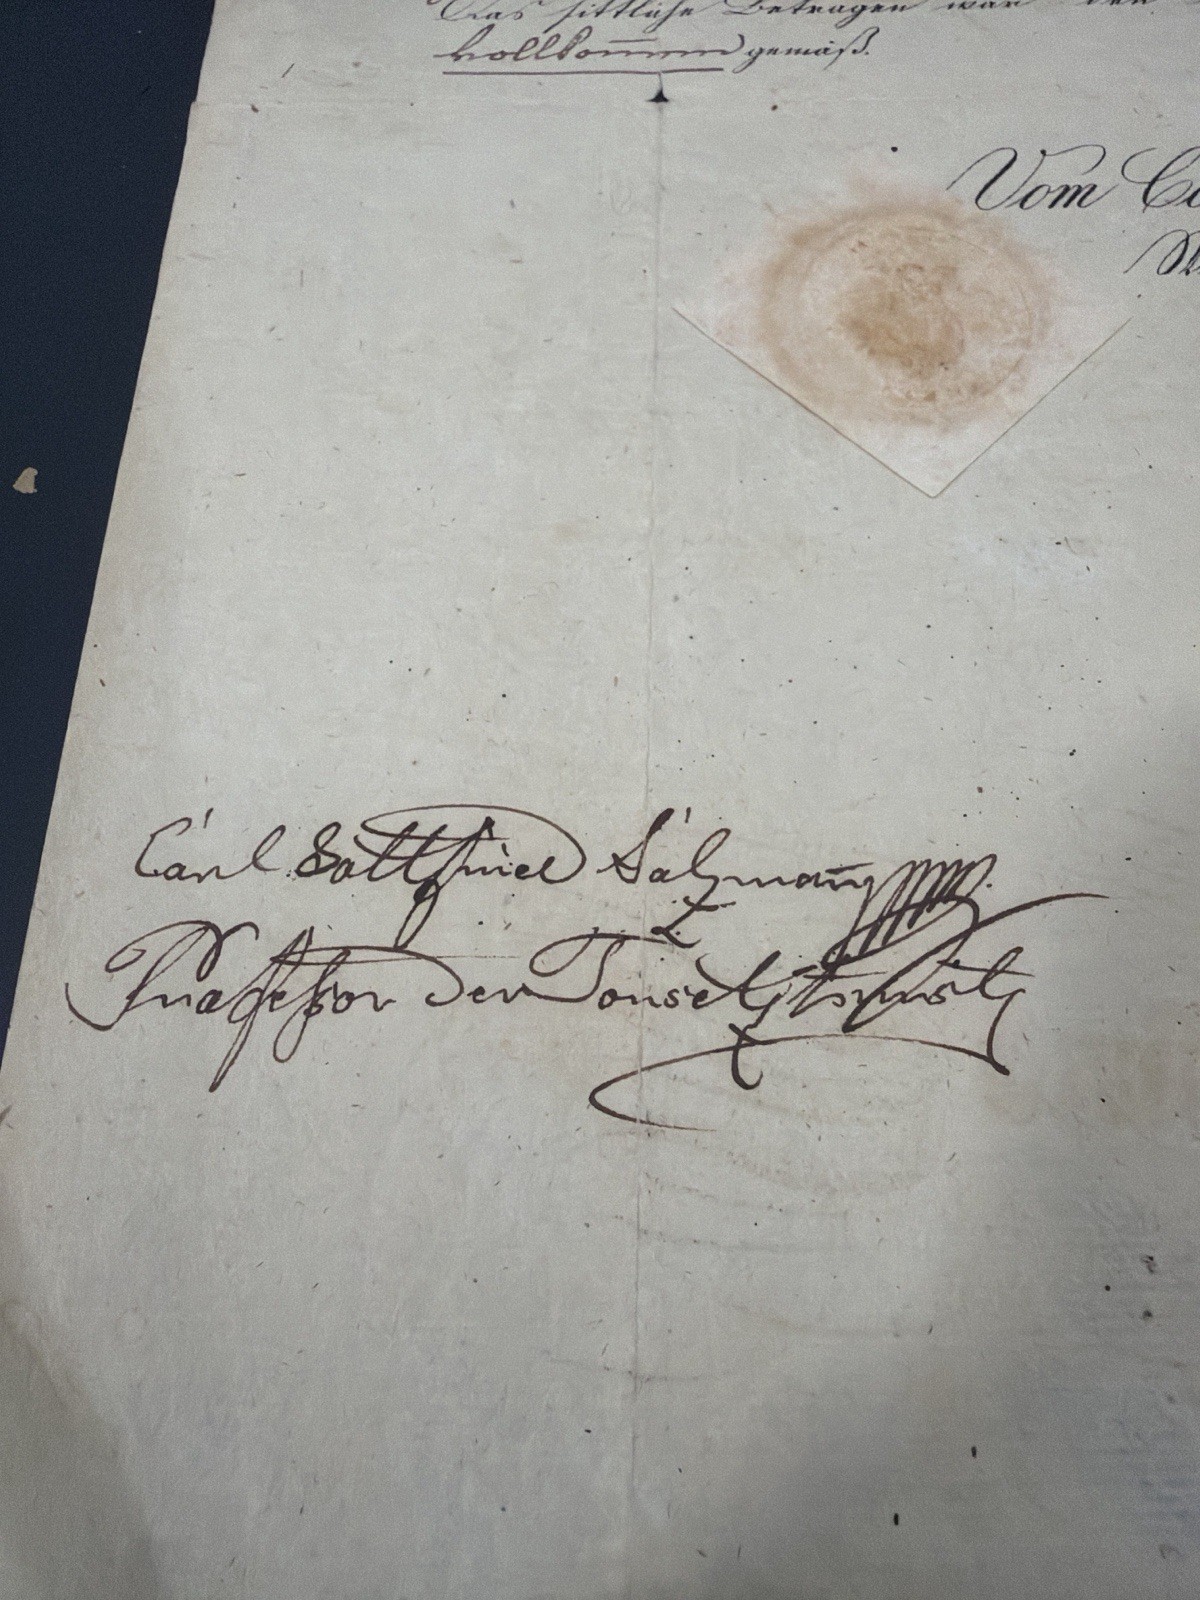 Das sittliche Betragen war den
vollkom̅en gemäß.
Vom
Carl Gottfried Salzman̅
Professor der Tonsetzkunst